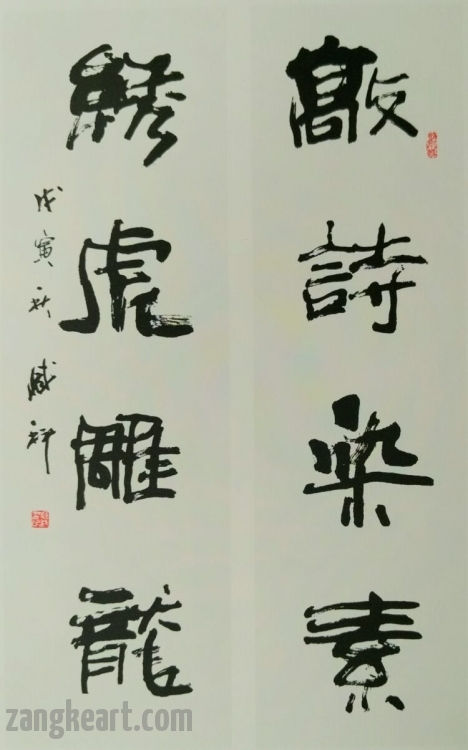 敲詩染素
綉虎雕龍
戊寅秋臧科
zangkeart.com